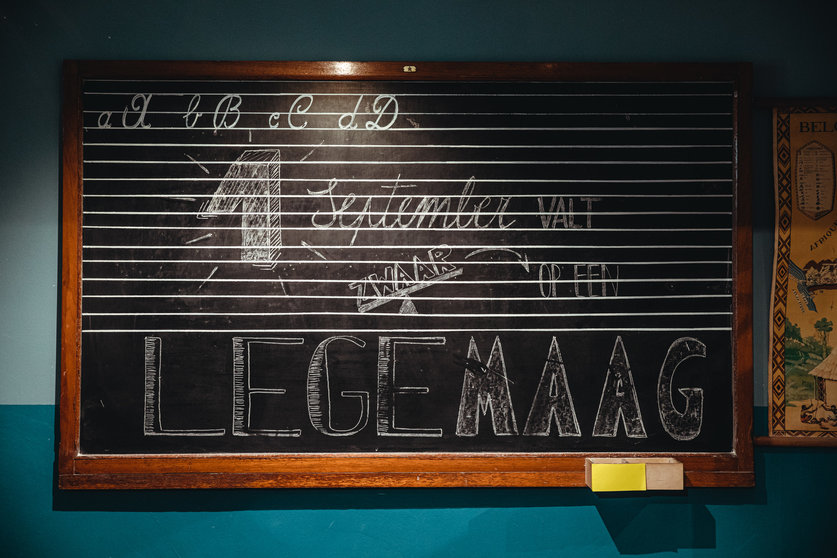 a A b B c C d D
1 September VALT
ZWAAR OP EEN
LEGE MAAG
BEL
AFRIQU